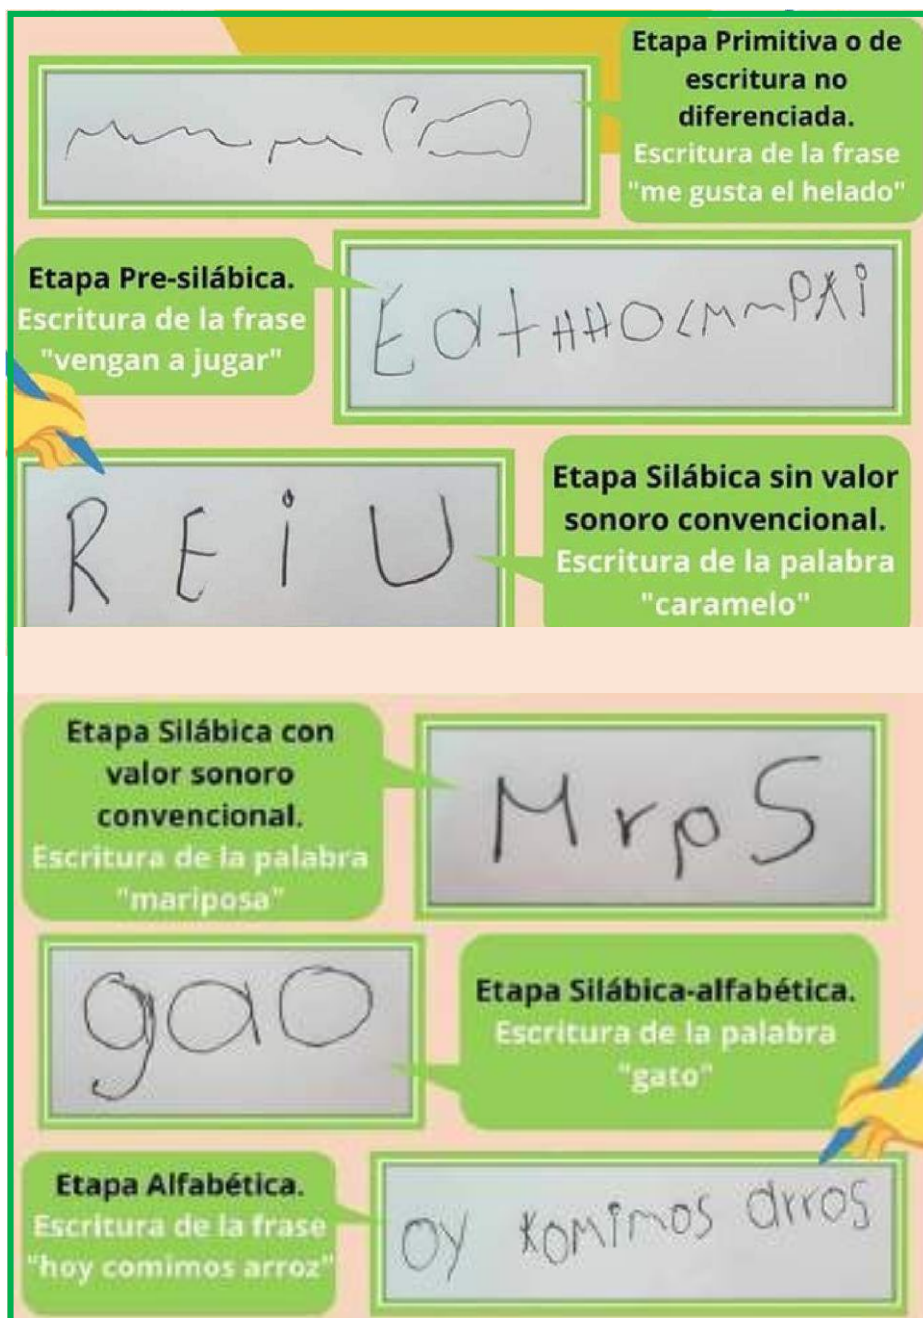 Etapa Primitiva o de
escritura no
diferenciada.
Escritura de la frase
"me gusta el helado"
Etapa Pre-silábica.
Escritura de la frase
"vengan a jugar"
R E i U
Etapa Silábica sin valor
sonoro convencional.
Escritura de la palabra
"caramelo"
Etapa Silábica con
valor sonoro
convencional.
Escritura de la palabra
"mariposa"
M r p S
gao
Etapa Silábica-alfabética.
Escritura de la palabra
"gato"
Etapa Alfabética.
Escritura de la frase
"hoy comimos arroz"
oy komimos arros